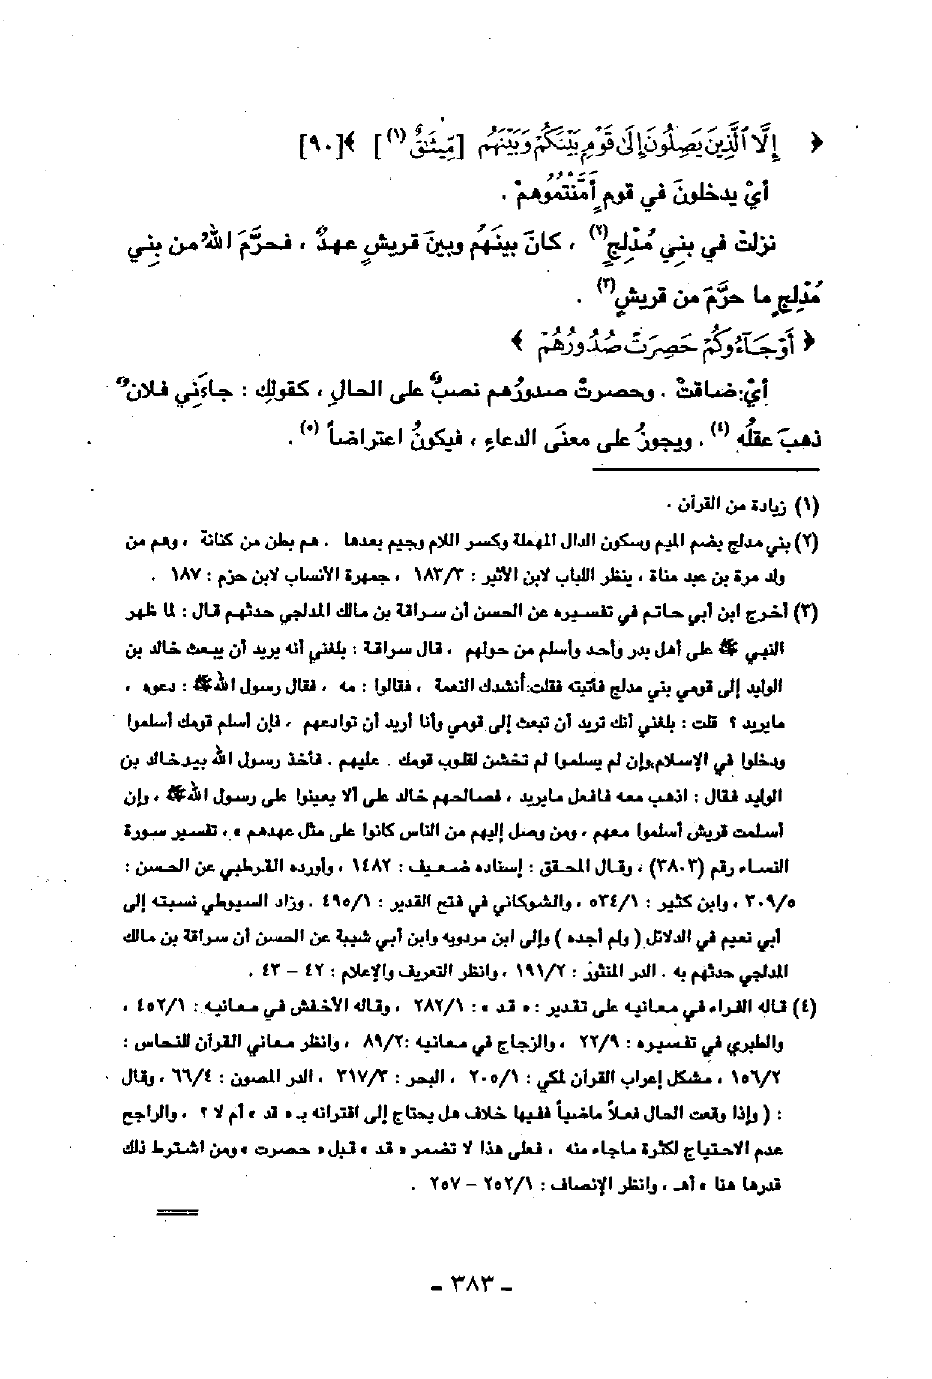 ﴿ إِلَّا ٱلَّذِينَ يَصِلُونَ إِلَىٰ قَوْمٍۭ بَيْنَكُمْ وَبَيْنَهُم [ مِّيثَـٰقٌ (١) ] ﴾[٩٠]
أيْ يدخلونَ في قومٍ أَمَّنْتُمُوهمْ .
نزلتْ في بنِي مُدْلِجٍ(٢) ، كانَ بينَهُم وبينَ قريشٍ عهدٌ ، فحرَّمَ اللهُ من بنِي
مُدْلِجٍ ما حرَّمَ من قريشٍ(٣) .
﴿ أَوْ جَآءُوكُمْ حَصِرَتْ صُدُورُهُمْ ﴾
أيْ:ضاقتْ . وحصرتْ صدورُهم نصبٌ على الحالِ ، كقولِكِ : جاءَنِي فلانٌ
ذهبَ عقلُه (٤) . ويجوزُ على معنَى الدعاءِ ، فيكونُ اعتراضاً (٥) .
(١) زيادة من القرآن .
(٢) بني مدلج بضم الميم وسكون الدال المهملة وكسر اللام وجيم بعدها . هم بطن من كنانة ، وهم من
ولد مرة بن عبد مناة ، ينظر اللباب لابن الأثير : ١٨٣/٣ ، جمهرة الأنساب لابن حزم : ١٨٧ .
(٣) أخرج ابن أبي حاتم في تفسيره عن الحسن أن سراقة بن مالك المدلجي حدثهم قال : لما ظهر
النبي ﷺ على أهل بدر وأحد وأسلم من حولهم ، قال سراقة : بلغني أنه يريد أن يبعث خالد بن
الوليد إلى قومي بني مدلج فأتيته فقلت:أنشدك النعمة ، فقالوا : مه ، فقال رسول اللهﷺ : دعوه ،
مايريد ؟ قلت : بلغني أنك تريد أن تبعث إلى قومي وأنا أريد أن توادعهم ، فإن أسلم قومك أسلموا
ودخلوا في الإسلام،وإن لم يسلموا لم تخشن لقلوب قومك . عليهم . فأخذ رسول الله بيد خالد بن
الوليد فقال : اذهب معه فافعل مايريد ، فصالحهم خالد على ألا يعينوا على رسول اللهﷺ ، وإن
أسلمت قريش أسلموا معهم ، ومن وصل إليهم من الناس كانوا على مثل عهدهم » ، تفسير سورة
النساء رقم (٣٨٠٣) ، وقال المحقق : إسناده ضعيف : ١٤٨٢ ، وأورده القرطبي عن الحسن :
٣٠٩/٥ ، وابن كثير : ٥٣٤/١ ، والشوكاني في فتح القدير : ٤٩٥/١ . وزاد السيوطي نسبته إلى
أبي نعيم في الدلائل ( ولم أجده ) وإلى ابن مردويه وابن أبي شيبة عن الحسن أن سراقة بن مالك
المدلجي حدثهم به . الدر المنثور : ١٩١/٢ ، وانظر التعريف والإعلام : ٤٢ – ٤٣ .
(٤) قاله الفراء في معانيه على تقدير : « قد » : ٢٨٢/١ ، وقاله الأخفش في معانيه : ٤٥٢/١ ،
والطبري في تفسيره : ٢٢/٩ ، والزجاج في معانيه :٨٩/٢ ، وانظر معاني القرآن للنحاس :
١٥٦/٢ ، مشكل إعراب القرآن لمكي : ٢٠٥/١ ، البحر : ٣١٧/٣ ، الدر المصون : ٦٦/٤ ، وقال
: ( وإذا وقعت الحال فعلاً ماضياً ففيها خلاف هل يحتاج إلى اقترانه بـ « قد » أم لا ؟ ، والراجح
عدم الاحتياج لكثرة ماجاء منه ، فعلى هذا لا تضمر « قد » قبل « حصرت » ومن اشترط ذلك
قدرها هنا » أهـ ، وانظر الإنصاف : ٢٥٢/١ – ٢٥٧ .
ـ ٣٨٣ ـ